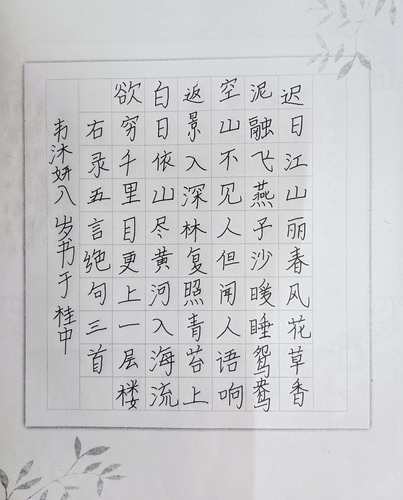 迟日江山丽春风花草香
泥融飞燕子沙暖睡鸳鸯
空山不见人但闻人语响
返景入深林复照青苔上
白日依山尽黄河入海流
欲穷千里目更上一层楼
右录五言绝句三首
韦沐妍八岁书于桂中